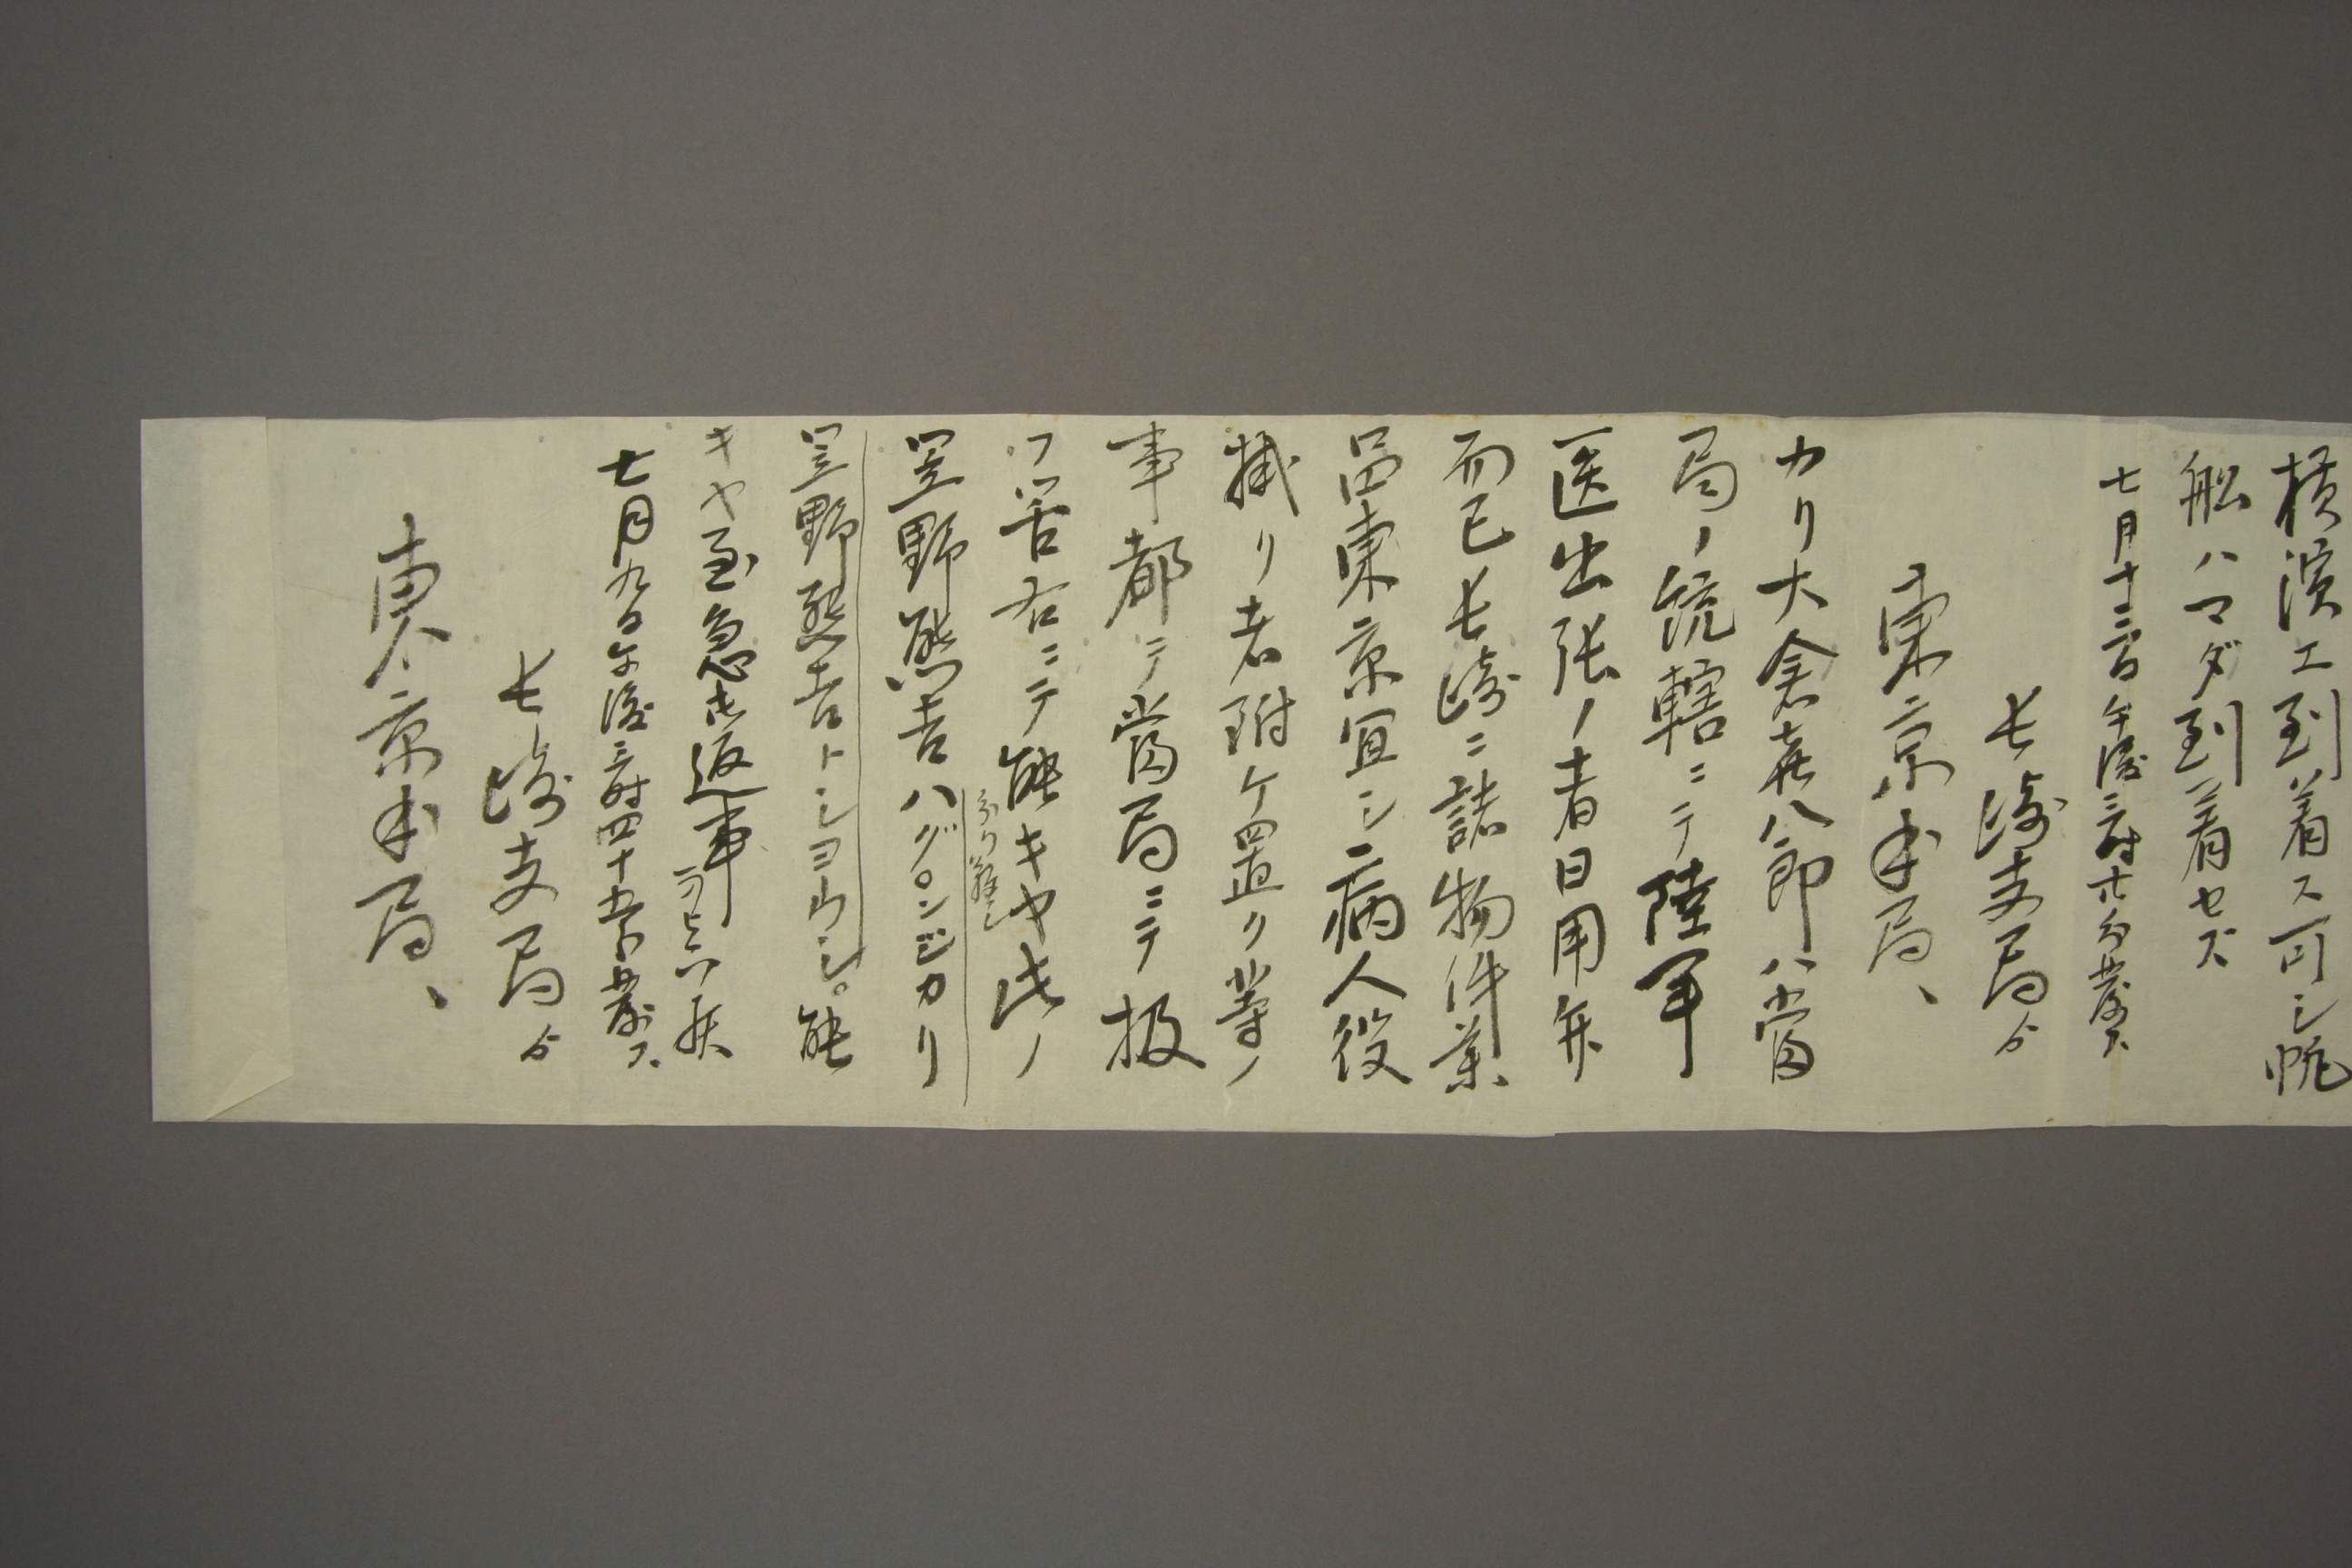 横濱エ到着ス可シ帆
船ハマダ到着セズ
七月十二日午後三時廿分発ス
長崎支局ゟ
東京本局、
カリ大倉喜八郎ハ當
局ノ統轄ニテ陸軍
医出張ノ者日用弁
而已長崎ニ諸物件業
品東京宜シ病人役
掛リ者附ケ置ク等ノ
事都テ當局ニテ扱
フ苦右ニテ能キヤ此ノ
笠野熊吉ハグンジカリ
笠野熊吉トシヨウシ。能
キヤ至急御返事
七月九日午後三時四十五分発ス
長崎支局ゟ
東京本局、